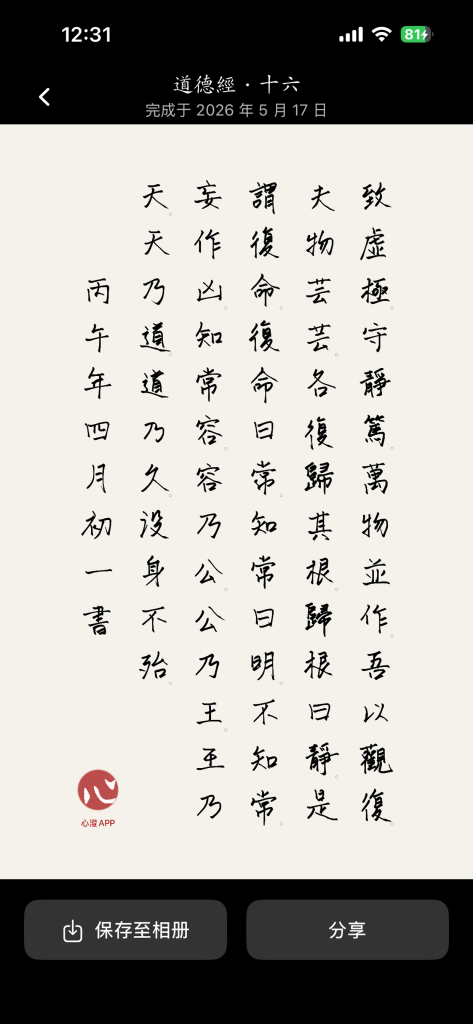 12:31
81
道德經·十六
完成于 2026 年 5 月 17 日
致虛極。守靜篤。萬物並作。吾以觀復。
夫物芸芸。各復歸其根。歸根曰靜。是
謂復命。復命曰常。知常曰明。不知常。
妄作凶。知常容。容乃公。公乃王。王乃
天。天乃道。道乃久。没身不殆。
丙午年四月初一書
心
心澄APP
保存至相册
分享